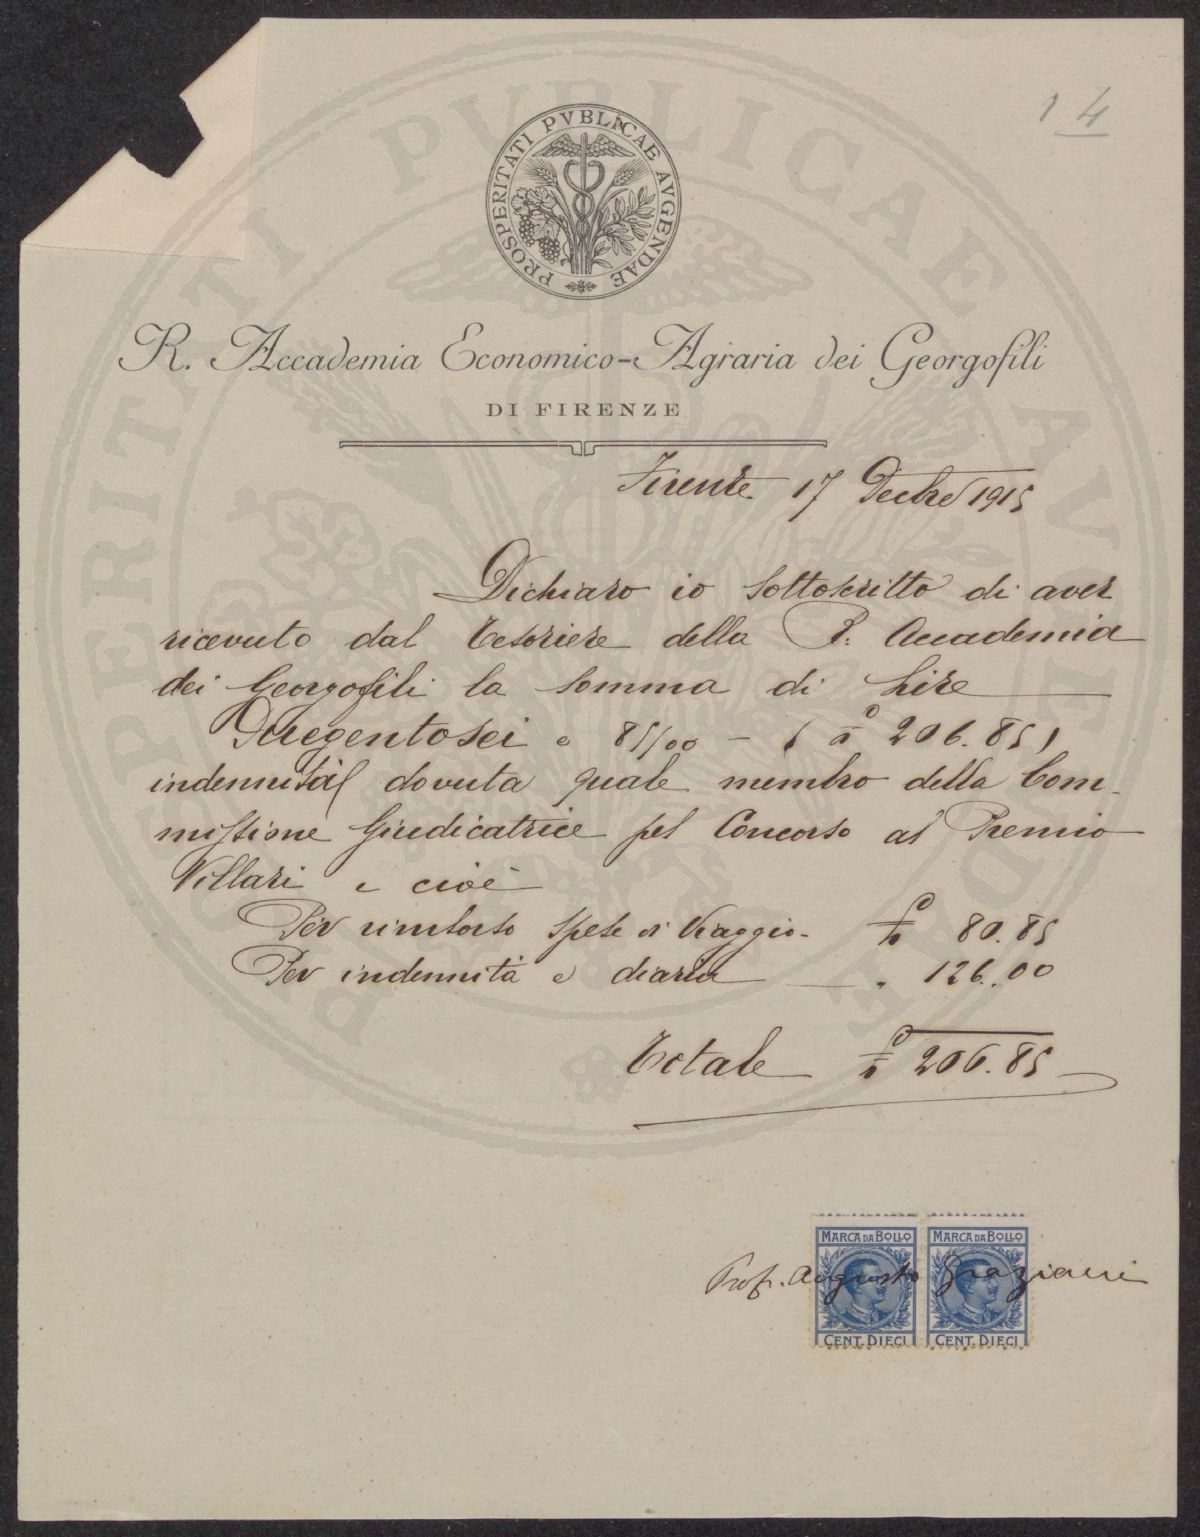 14
PROSPERITATI PVBLICAE AVGENDAE
R. Accademia Economico-Agraria dei Georgofili
DI FIRENZE
Firenze 17 Decbre 1915
Dichiaro io sottoscritto di aver
ricevuto dal Tesoriere della R. Accademia
dei Georgofili la somma di Lire
Duegentosei e 85/00 - (£ 206.85)
indennità dovuta quale membro della Com-
missione Giudicatrice pel Concorso al Premio
Villari e cioè
Per rimborso spese di Viaggio - £ 80.85
Per indennità e diaria " 126.00
Totale £ 206.85
MARCA DA BOLLO MARCA DA BOLLO
Prof. Augusto Graziani
CENT. DIECI CENT. DIECI